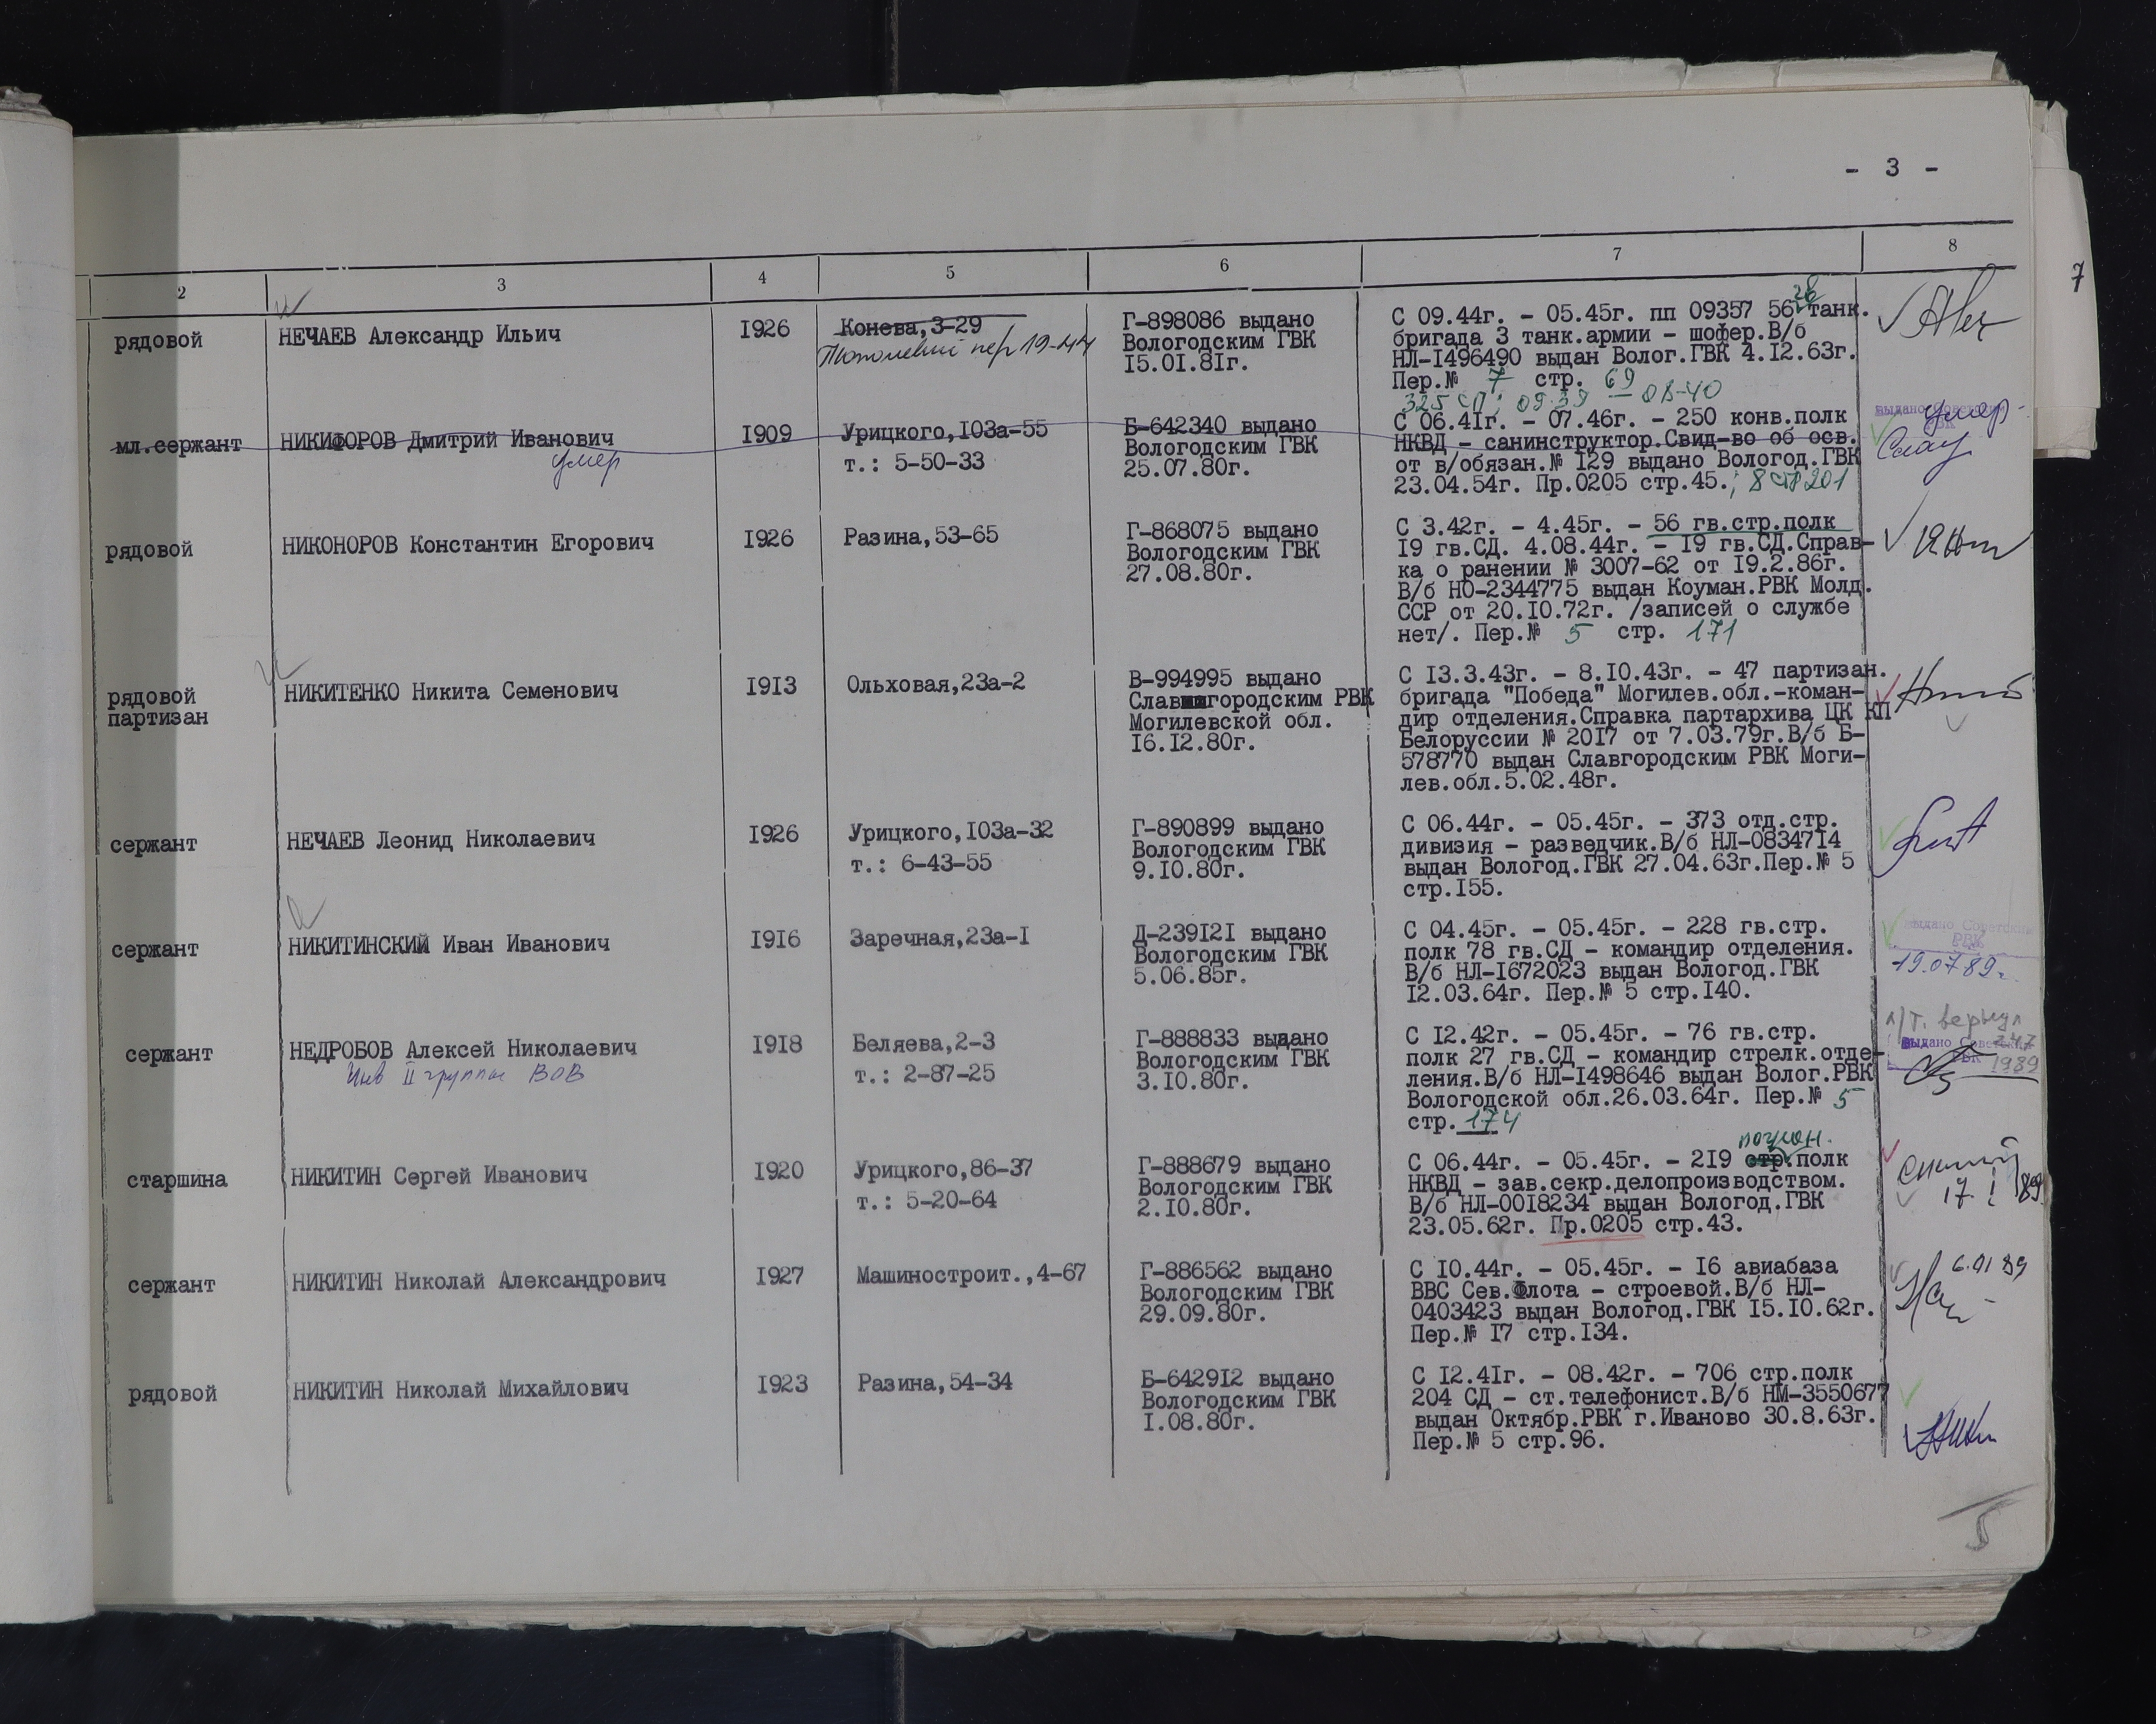 - 3 -
7
2 3 4 5 6 7 8
рядовой
НЕЧАЕВ Александр Ильич
I926
Конева,3-29
пер 19-44
Г-898086 выдано
Вологодским ГВК
I5.0I.8Iг.
гв
С 09.44г. - 05.45г. пп 09357 56 танк.
бригада 3 танк.армии - шофер.В/б
НЛ-I496490 выдан Волог.ГВК 4.I2.63г.
Пер.№ 7 стр. 69
325 сп; 09.39 - 08-40
мл.сержант
НИКИФОРОВ Дмитрий Иванович
умер
I909
Урицкого,I03а-55
т.: 5-50-33
Б-642340 выдано
Вологодским ГВК
25.07.80г.
С 06.4Iг. - 07.46г. - 250 конв.полк
НКВД - санинструктор.Свид-во об осв.
от в/обязан.№ I29 выдано Вологод.ГВК
23.04.54г. Пр.0205 стр.45.; 8 стр 201
выдано Советским
РВК
умер
рядовой
НИКОНОРОВ Константин Егорович
I926
Разина,53-65
Г-868075 выдано
Вологодским ГВК
27.08.80г.
С 3.42г. - 4.45г. - 56 гв.стр.полк
I9 гв.СД. 4.08.44г. - I9 гв.СД.Справ-
ка о ранении № 3007-62 от I9.2.86г.
В/б НО-2344775 выдан Коуман.РВК Молд.
ССР от 20.I0.72г. /записей о службе
нет/. Пер.№ 5 стр. 171
рядовой
партизан
НИКИТЕНКО Никита Семенович
I9I3
Ольховая,23а-2
В-994995 выдано
Славгородским РВК
Могилевской обл.
I6.I2.80г.
С I3.3.43г. - 8.I0.43г. - 47 партизан.
бригада "Победа" Могилев.обл.-коман-
дир отделения.Справка партархива ЦК КП
Белоруссии № 20I7 от 7.03.79г.В/б Б-
578770 выдан Славгородским РВК Моги-
лев.обл.5.02.48г.
сержант
НЕЧАЕВ Леонид Николаевич
I926
Урицкого,I03а-32
т.: 6-43-55
Г-890899 выдано
Вологодским ГВК
9.I0.80г.
С 06.44г. - 05.45г. - 373 отд.стр.
дивизия - разведчик.В/б НЛ-08347I4
выдан Вологод.ГВК 27.04.63г.Пер.№ 5
стр.I55.
сержант
НИКИТИНСКИЙ Иван Иванович
I9I6
Заречная,23а-I
Д-239I2I выдано
Вологодским ГВК
5.06.85г.
С 04.45г. - 05.45г. - 228 гв.стр.
полк 78 гв.СД - командир отделения.
В/б НЛ-I672023 выдан Вологод.ГВК
I2.03.64г. Пер.№ 5 стр.I40.
выдано Советским
РВК
19.07.89г.
сержант
НЕДРОБОВ Алексей Николаевич
Инв II группы ВОВ
I9I8
Беляева,2-3
т.: 2-87-25
Г-888833 выдано
Вологодским ГВК
3.I0.80г.
С I2.42г. - 05.45г. - 76 гв.стр.
полк 27 гв.СД - командир стрелк.отде-
ления.В/б НЛ-I498646 выдан Волог.РВК
Вологодской обл.26.03.64г. Пер.№ 5
стр. 174
вернул
выдано Советским
РВК 1989
старшина
НИКИТИН Сергей Иванович
I920
Урицкого,86-37
т.: 5-20-64
Г-888679 выдано
Вологодским ГВК
2.I0.80г.
погран.
С 06.44г. - 05.45г. - 2I9 стр.полк
НКВД - зав.секр.делопроизводством.
В/б НЛ-00I8234 выдан Вологод.ГВК
23.05.62г. Пр.0205 стр.43.
17.I 89
сержант
НИКИТИН Николай Александрович
I927
Машиностроит.,4-67
Г-886562 выдано
Вологодским ГВК
29.09.80г.
С I0.44г. - 05.45г. - I6 авиабаза
ВВС Сев.Флота - строевой.В/б НЛ-
0403423 выдан Вологод.ГВК I5.I0.62г.
Пер.№ I7 стр.I34.
6.01 89
рядовой
НИКИТИН Николай Михайлович
I923
Разина,54-34
Б-6429I2 выдано
Вологодским ГВК
I.08.80г.
С I2.4Iг. - 08.42г. - 706 стр.полк
204 СД - ст.телефонист.В/б НМ-3550677
выдан Октябр.РВК г.Иваново 30.8.63г.
Пер.№ 5 стр.96.
5